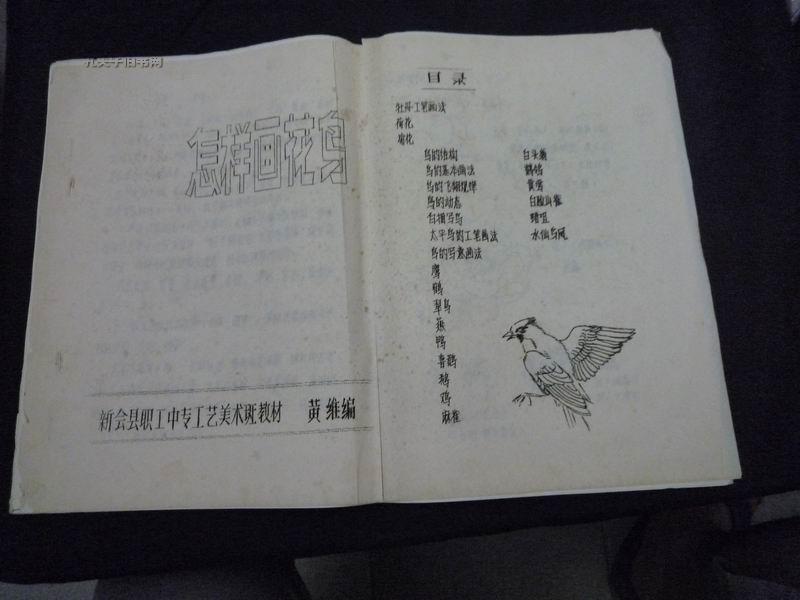 孔夫子旧书网
怎样画花鸟
新会县职工中专工艺美术班教材 黄维编
目录
牡丹工笔画法
荷花
菊花
鸟的结构
鸟的基本画法
鸟的飞翔规律
鸟的动态
白描写鸟
太平鸟的工笔画法
鸟的写意画法
鹰
鹤
翠鸟
燕
鸭
喜鹊
鹅
鸡
麻雀
白头翁
鹌鹑
黄莺
白脸山雀
水仙鸟尾